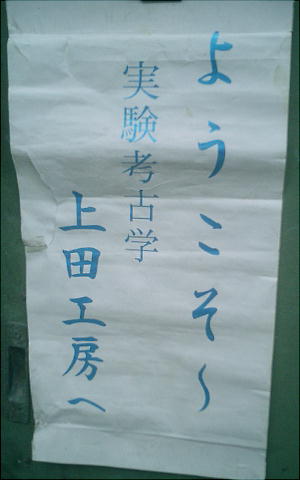 ようこそ～
実験考古学
上田工房へ